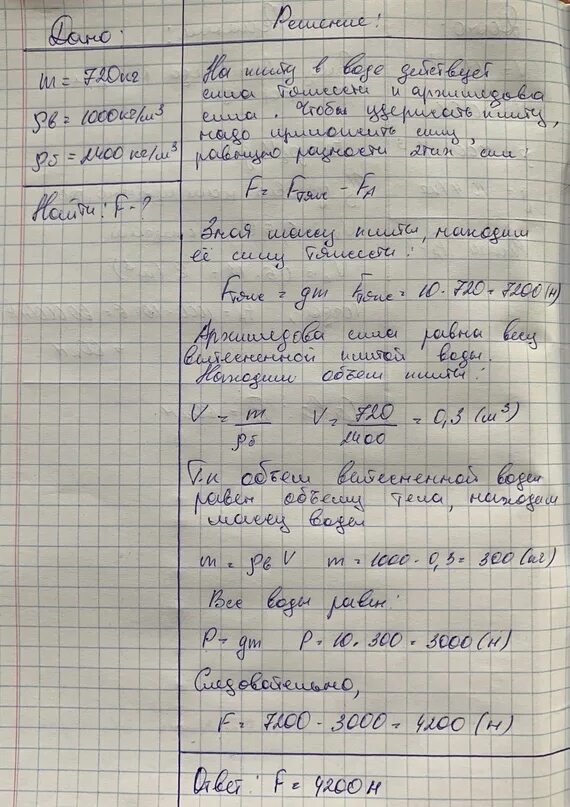 Дано:
m = 720 кг
ρв = 1000 кг/м³
ρб = 2400 кг/м³
Найти: F - ?
Решение:
На плиту в воде действует
сила тяжести и архимедова
сила. Чтобы удержать плиту,
надо приложить силу,
равную разности этих сил:
F = Fтяж - FA
Зная массу плиты, находим
её силу тяжести:
Fтяж = gm Fтяж = 10 · 720 = 7200 (Н)
Архимедова сила равна весу
вытесненной плитой воды.
Находим объем плиты:
V = m/ρб V = 720/2400 = 0,3 (м³)
Т.к объем вытесненной воды
равен объему тела, находим
массу воды
m = ρв V m = 1000 · 0,3 = 300 (кг)
Вес воды равен:
P = gm P = 10 · 300 = 3000 (Н)
Следовательно,
F = 7200 - 3000 = 4200 (Н)
Ответ: F = 4200 Н